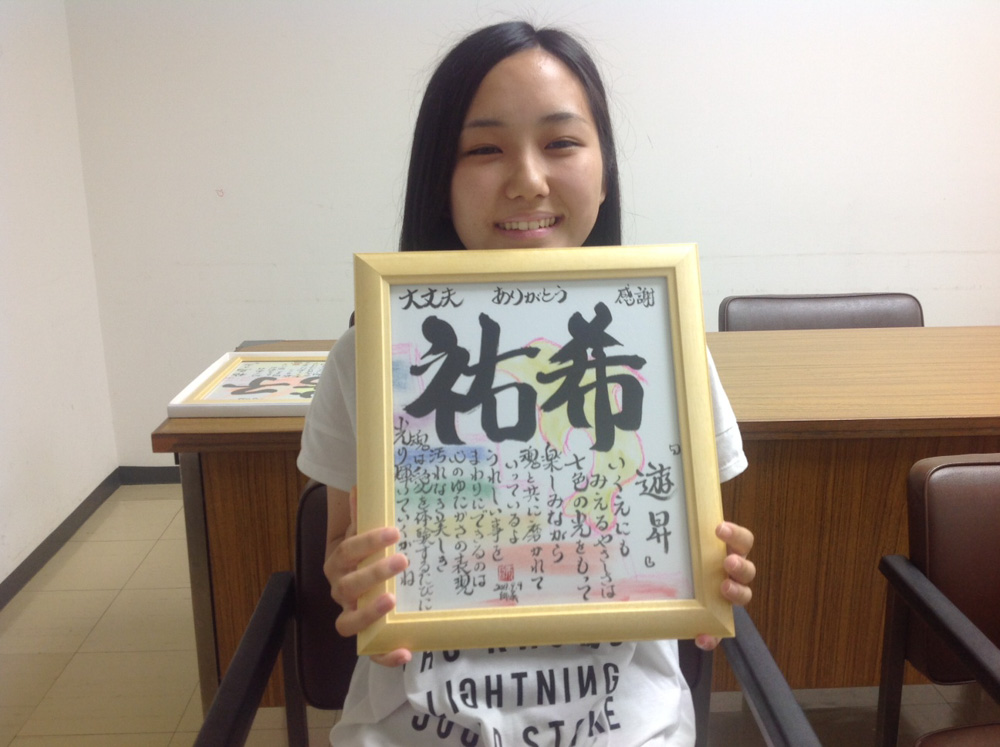 大丈夫 ありがとう 感謝
祐希
『遊昇』
いくえにも
みえるやさしさは
七色の光をもって
楽しみながら
魂と共に磨かれて
いっているよ
うれしい事を
まわりにできるのは
心のゆたかさの表現
汚れなき美しき
魂は愛を体験するたびに
光り輝いていくからね
LIGHTNING